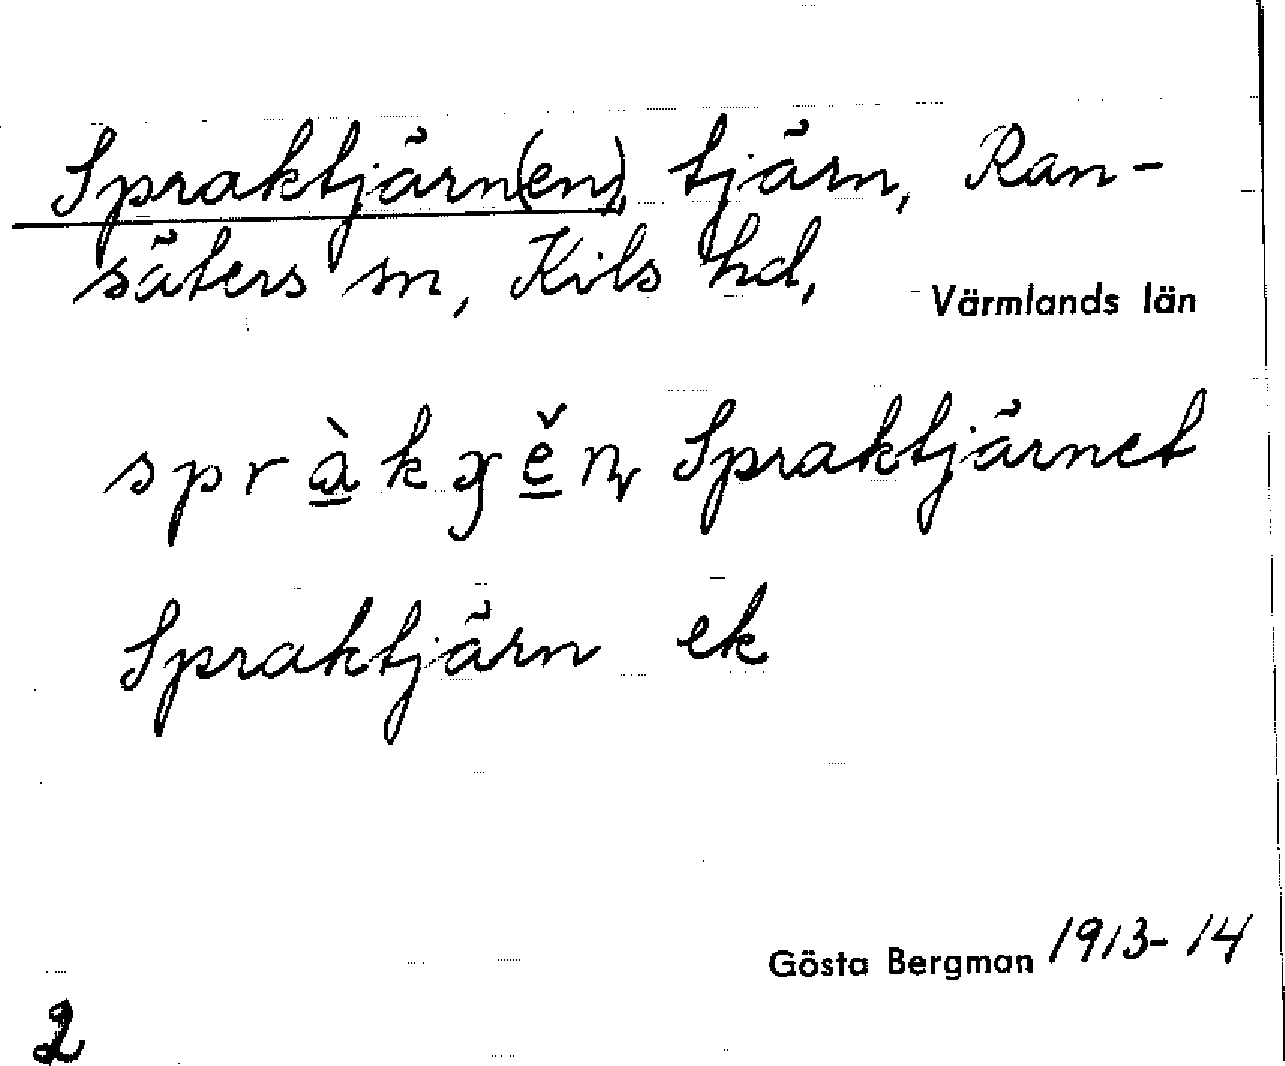 Spraktjärn(en), tjärn, Ran-
säters sn, Kils hd, Värmlands län
sprà̱kɣě̱ɳ Spraktjärnet
Spraktjärn ek
Gösta Bergman 1913-14
2